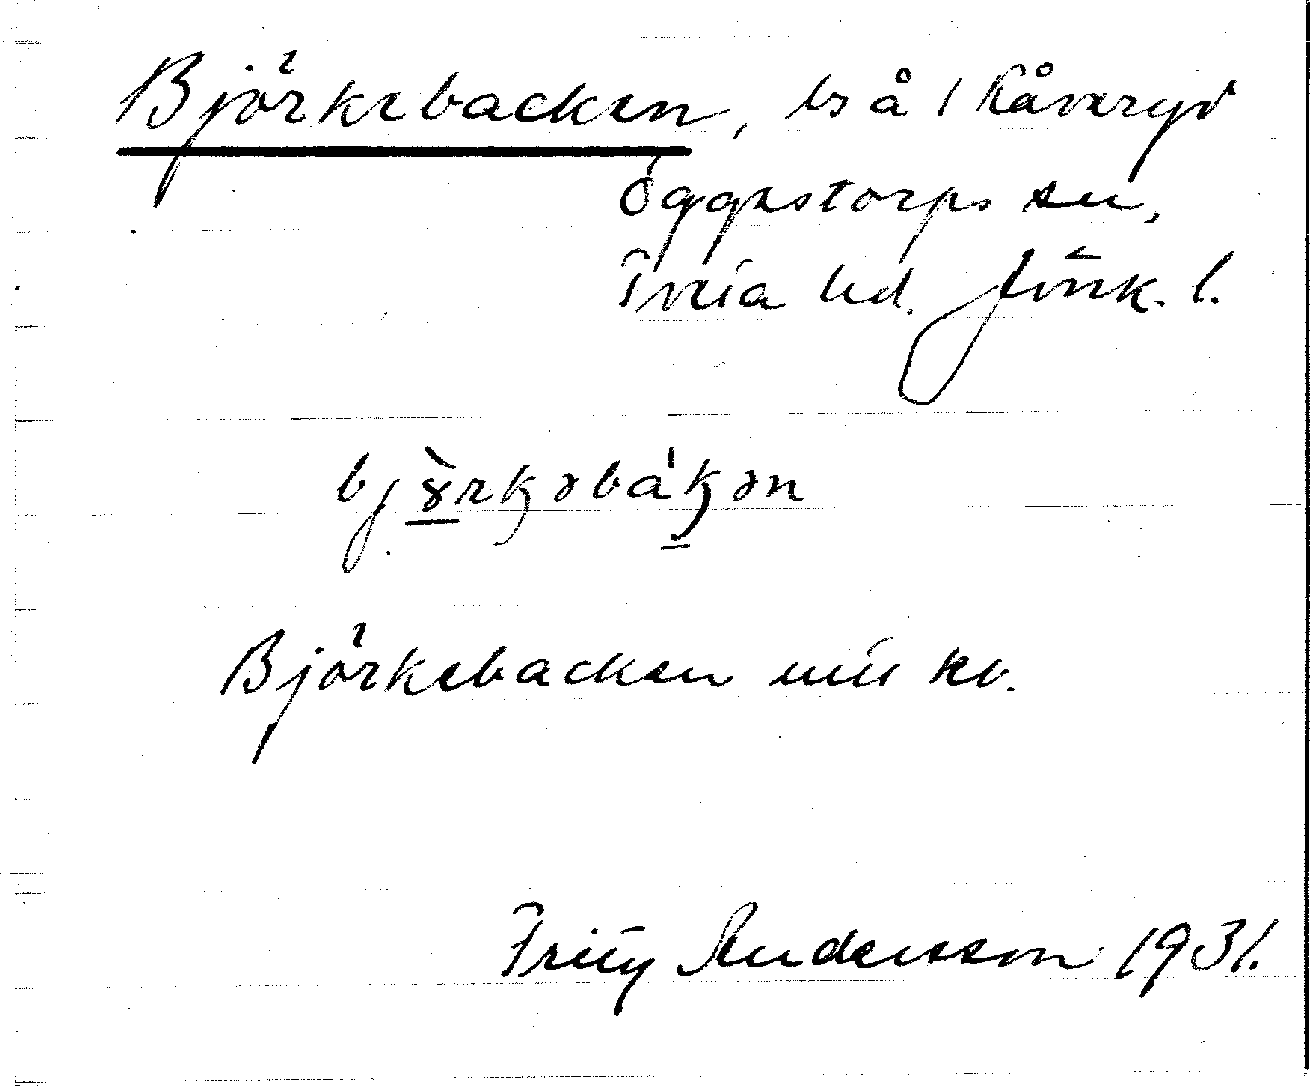 Björkebacken, ls å / Råveryd
Öggestorps sn,
Tveta hd. Jönk. l.
björkəbákən
Björkebacken mtl kb.
Fritz Andersson 1931.